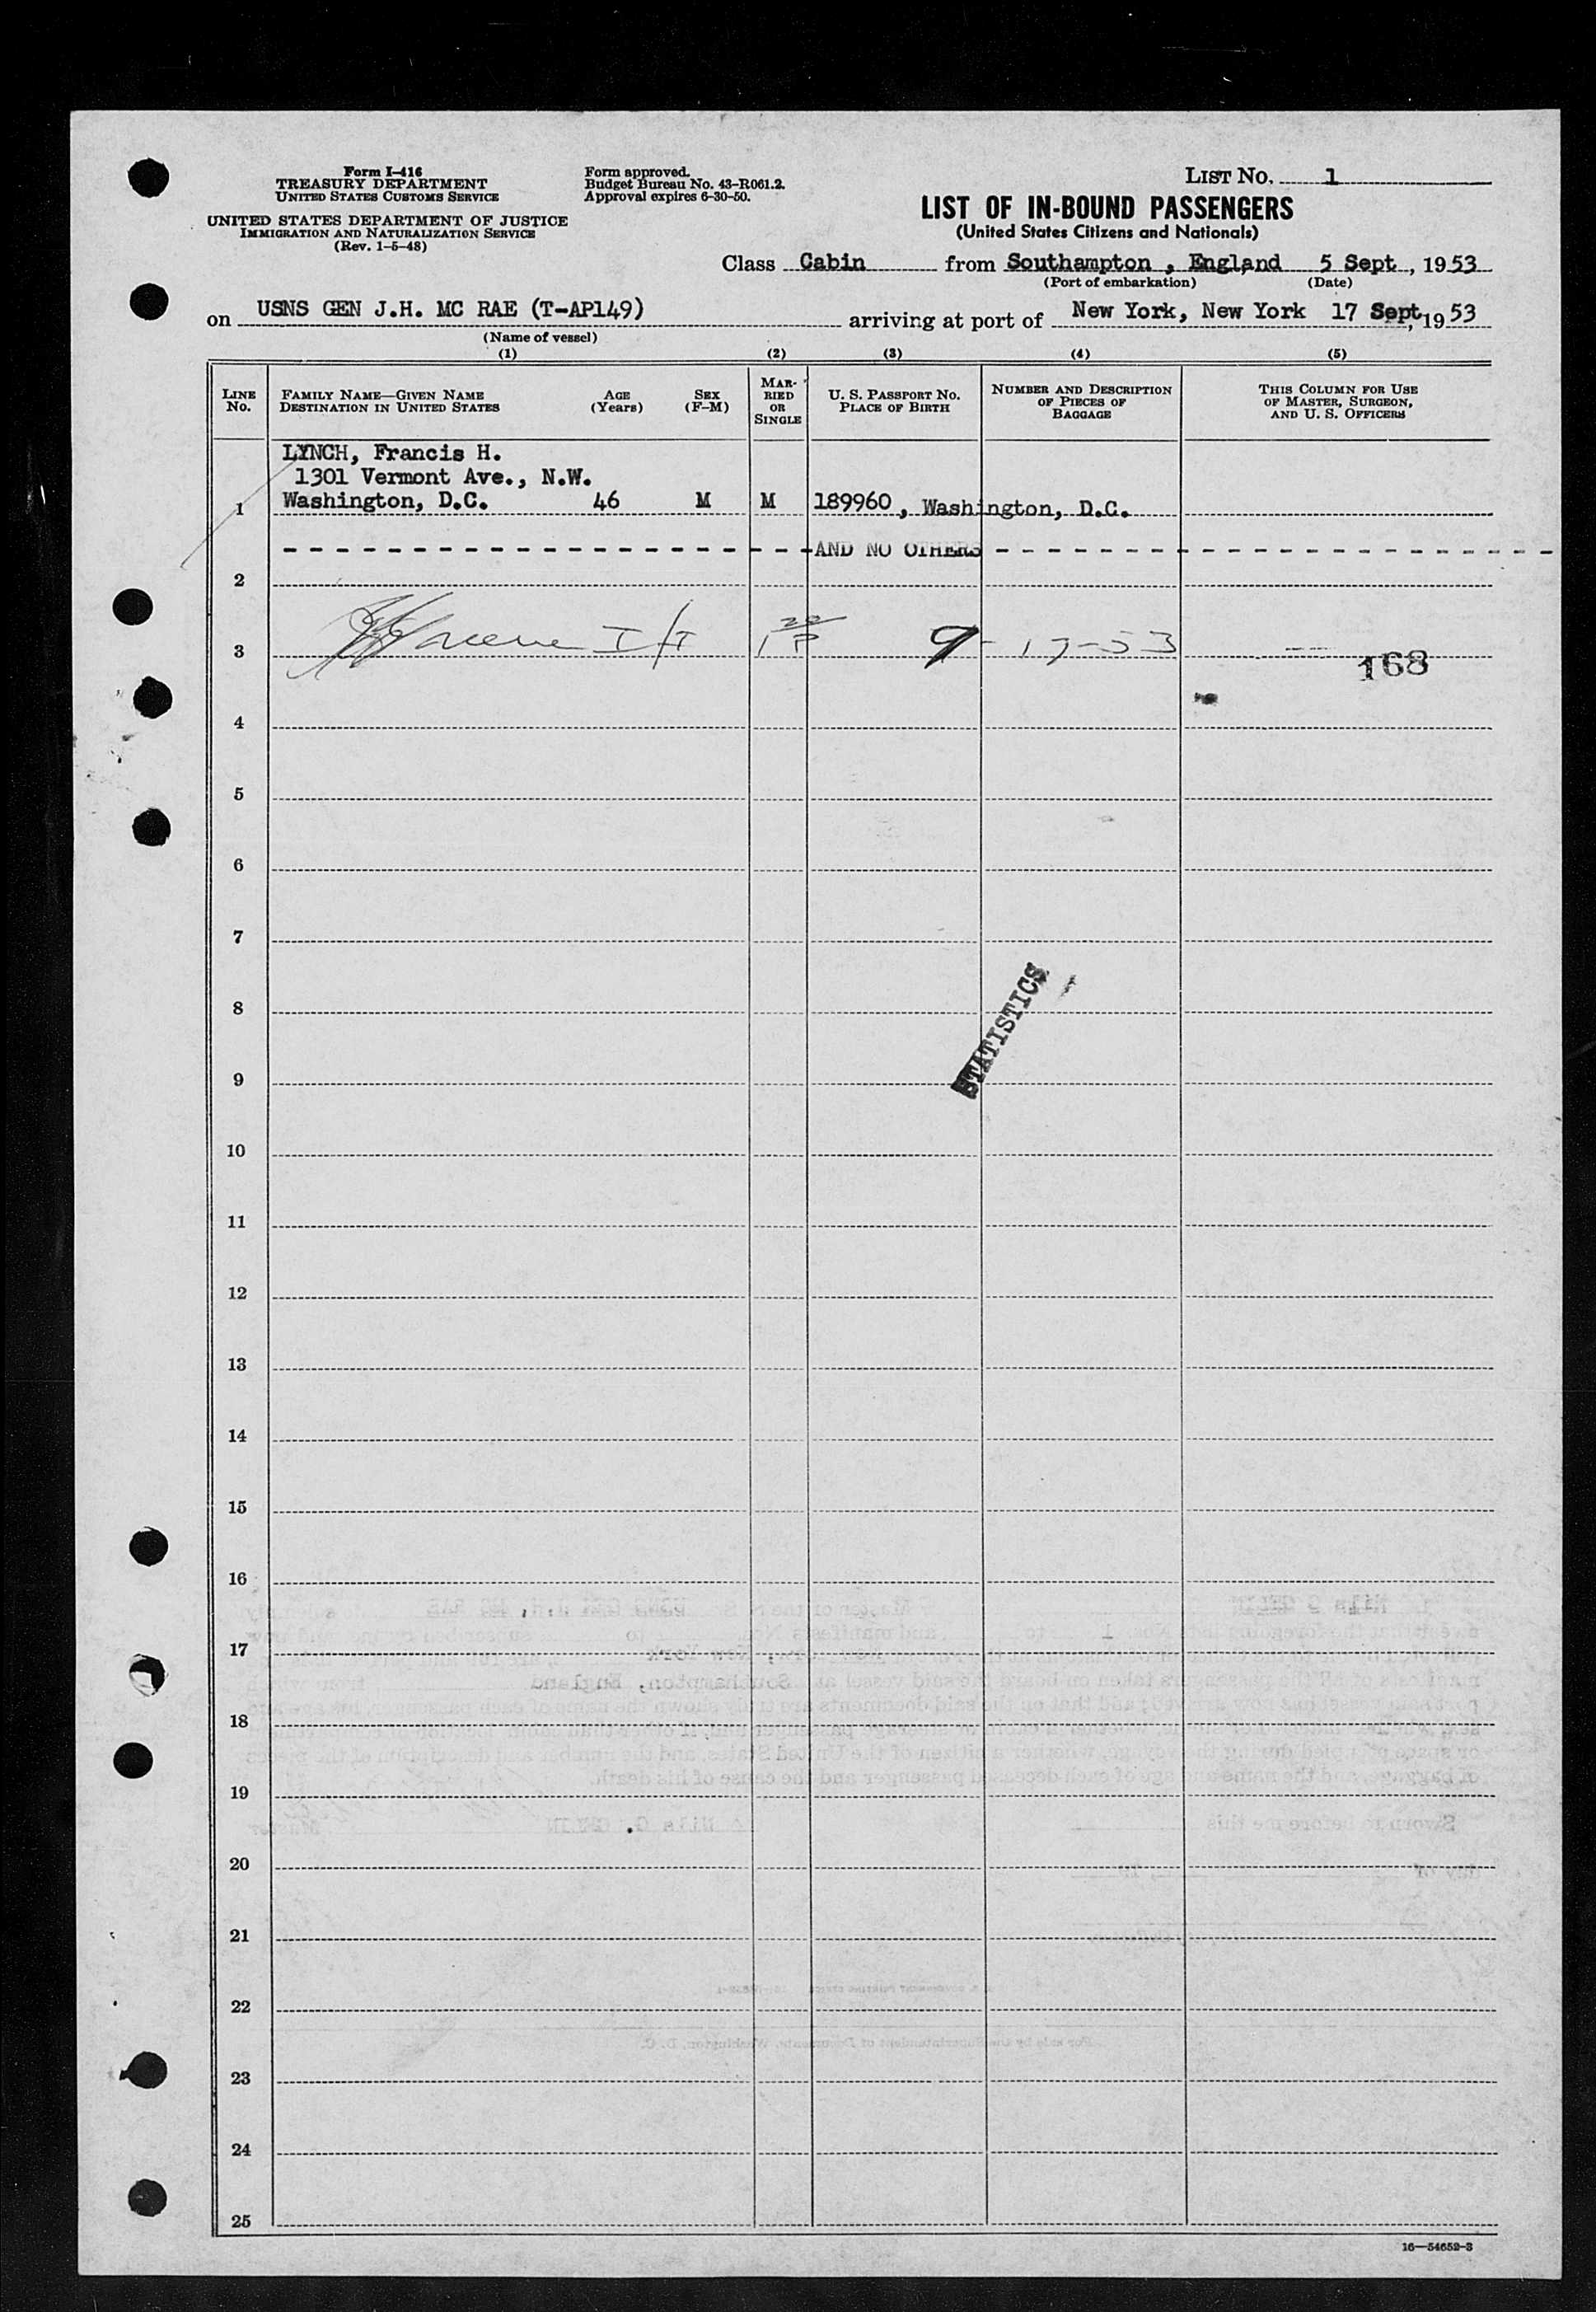 Form I-416
TREASURY DEPARTMENT
UNITED STATES CUSTOMS SERVICE
UNITED STATES DEPARTMENT OF JUSTICE
IMMIGRATION AND NATURALIZATION SERVICE
(Rev. 1-5-48)
Form approved.
Budget Bureau No. 43-R061.2.
Approval expires 6-30-50.
LIST No. 1
LIST OF IN-BOUND PASSENGERS
(United States Citizens and Nationals)
Class Cabin from Southampton , England 5 Sept , 1953
(Port of embarkation) (Date)
on USNS GEN J.H. MC RAE (T-AP149) arriving at port of New York, New York 17 Sept, 1953
(Name of vessel)
(1) (2) (3) (4) (5)
LINE No. FAMILY NAME—GIVEN NAME DESTINATION IN UNITED STATES AGE (Years) SEX (F-M) MARRIED OR SINGLE U. S. PASSPORT No. PLACE OF BIRTH NUMBER AND DESCRIPTION OF PIECES OF BAGGAGE THIS COLUMN FOR USE OF MASTER, SURGEON, AND U. S. OFFICERS
LYNCH, Francis H.
1301 Vermont Ave., N.W.
1 Washington, D.C. 46 M M 189960, Washington, D.C.
AND NO OTHERS
2
3 9-17-53
168
4
5
6
7
STATISTICS
8
9
10
11
12
13
14
15
16
17
18
19
20
21
22
23
24
25
16—54652-3